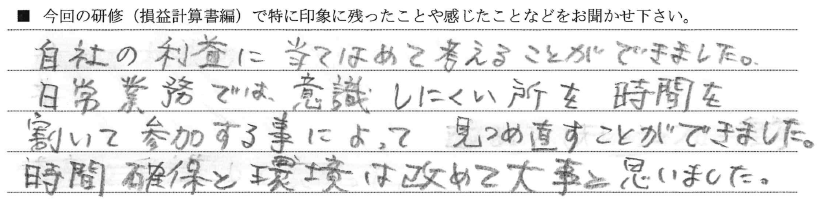 ■ 今回の研修（損益計算書編）で特に印象に残ったことや感じたことなどをお聞かせ下さい。
自社の利益に当てはめて考えることができました。
日常業務では、意識しにくい所を時間を
割いて参加する事によって見つめ直すことができました。
時間確保と環境は改めて大事と思いました。